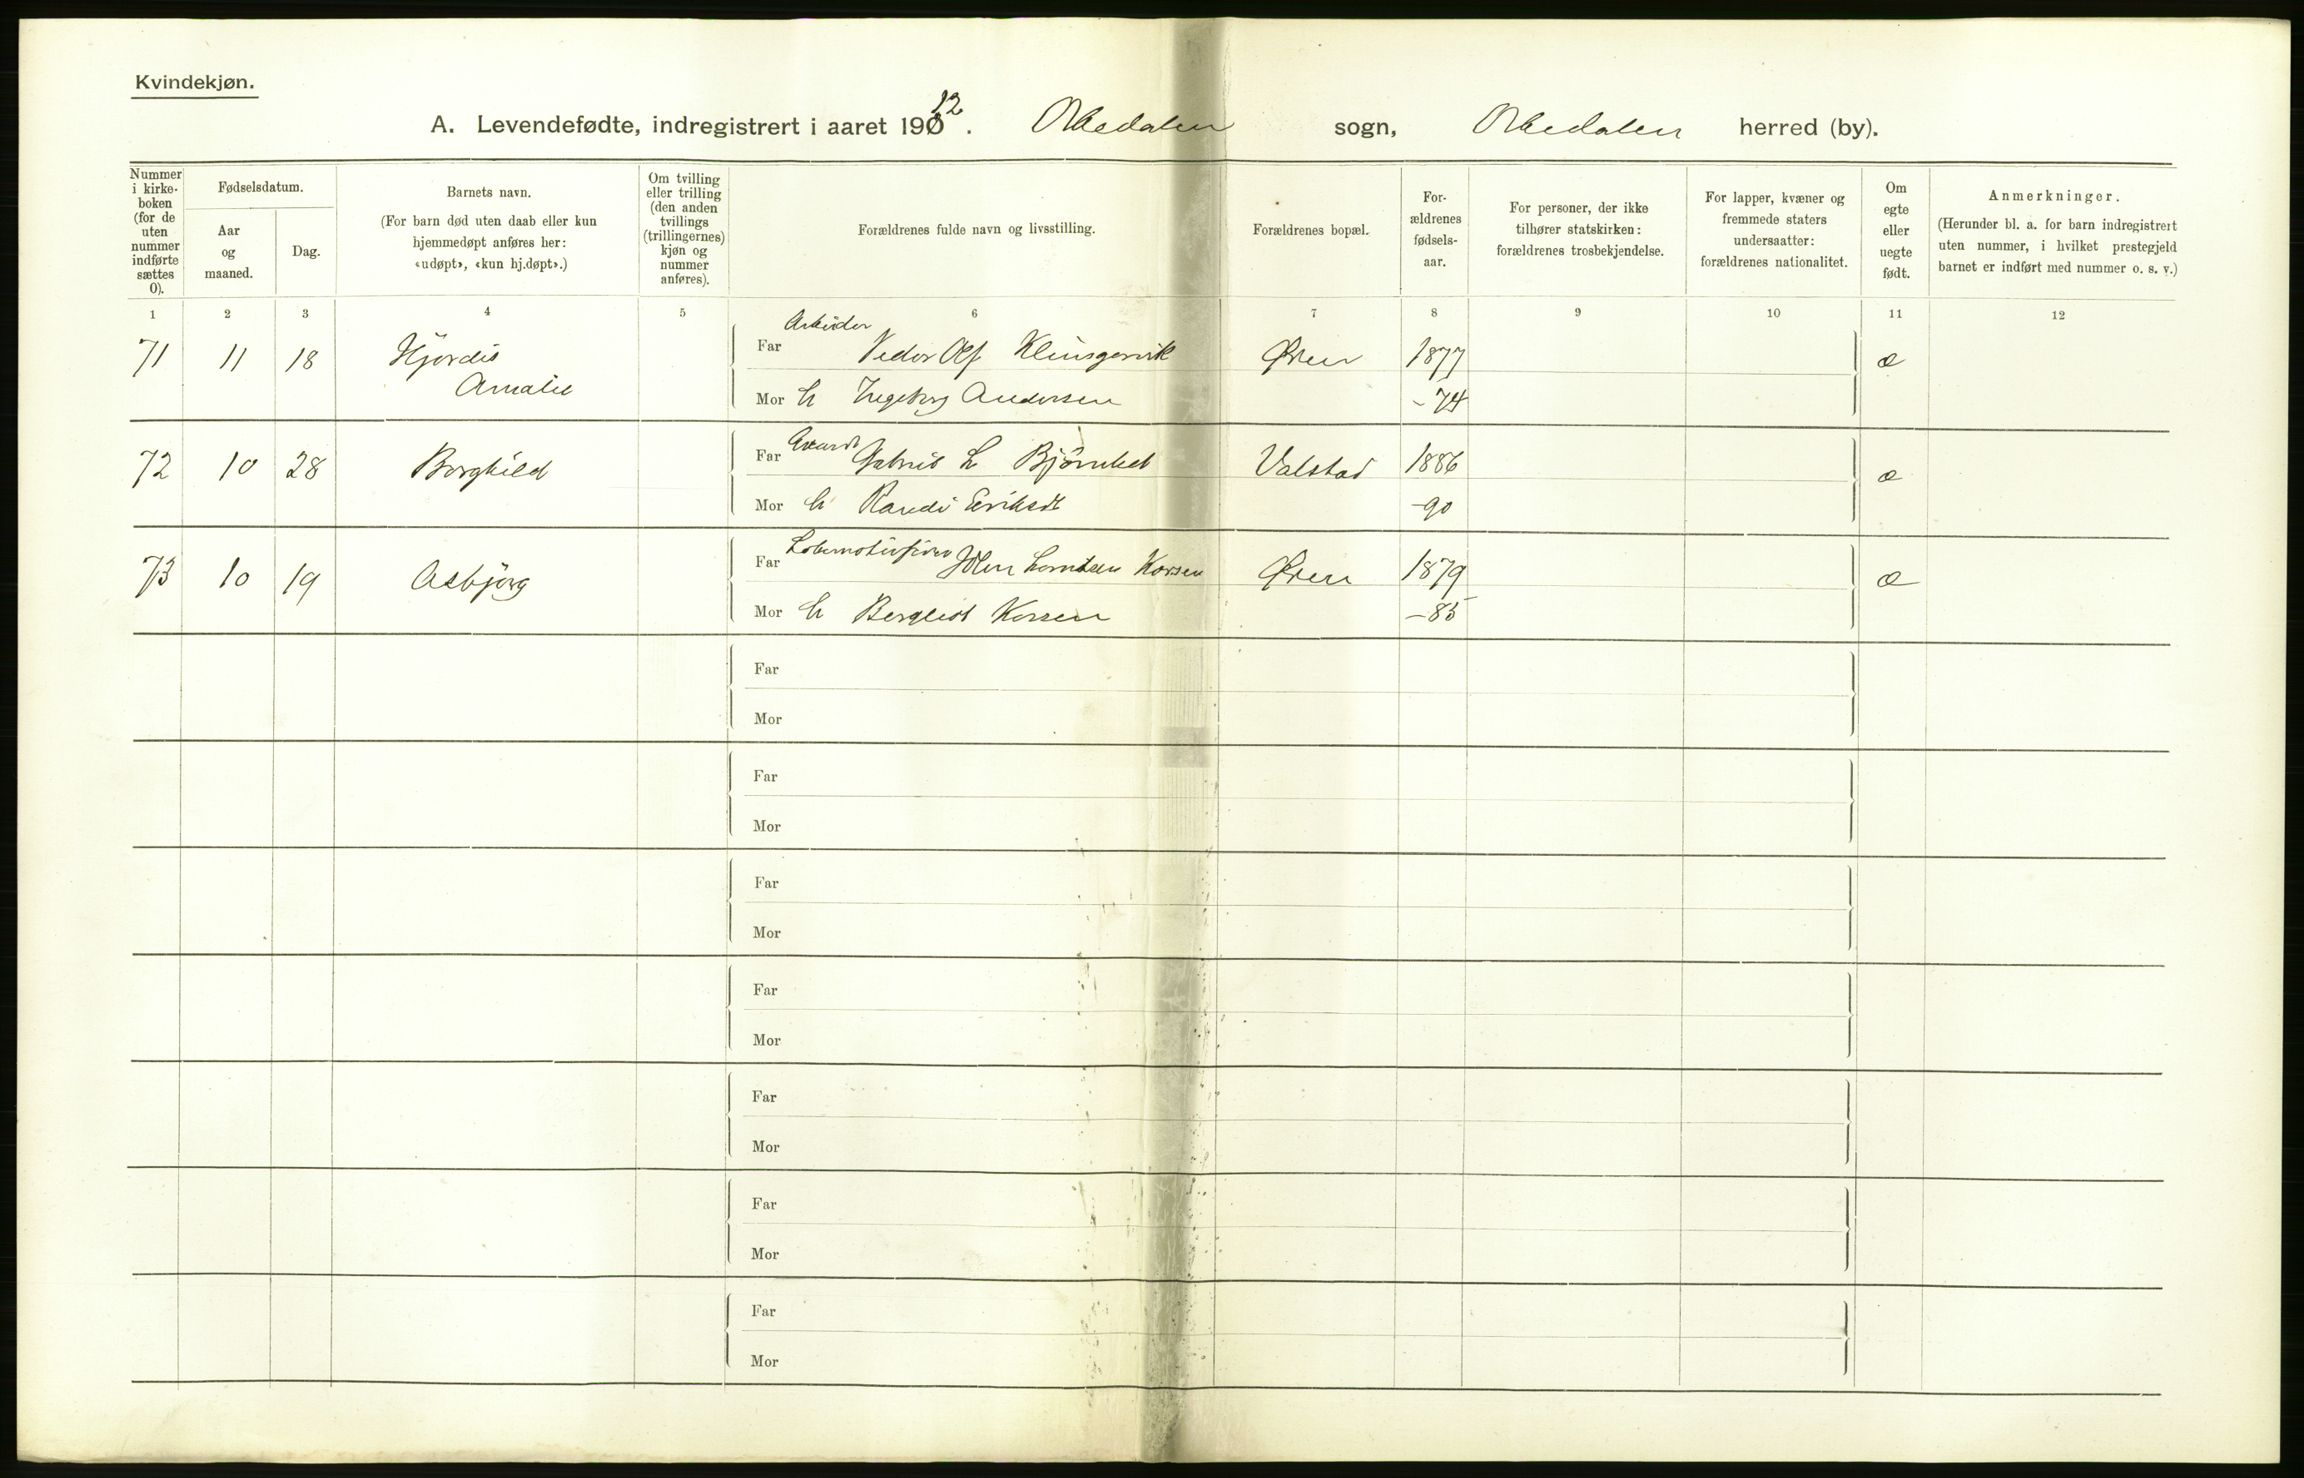 Kvindekjøn.
A. Levendefødte, indregistrert i aaret 1912. Orkedalen sogn, Orkedalen herred (by).
Nummer i kirke-boken (for de uten nummer indførte sættes 0).
Fødselsdatum.
Aar og maaned.
Dag.
Barnets navn.
(For barn død uten daab eller kun hjemmedøpt anføres her: «udøpt», «kun hj.døpt».)
Om tvilling eller trilling (den anden tvillings (trillingernes) kjøn og nummer anføres).
Forældrenes fulde navn og livsstilling.
Forældrenes bopæl.
For-ældrenes fødsels-aar.
For personer, der ikke tilhører statskirken: forældrenes trosbekjendelse.
For lapper, kvæner og fremmede staters undersaatter: forældrenes nationalitet.
Om egte eller uegte født.
Anmerkninger.
(Herunder bl. a. for barn indregistrert uten nummer, i hvilket prestegjeld barnet er indført med nummer o. s. v.)
1 2 3 4 5 6 7 8 9 10 11 12
Arbeider
71 11 18 Hjordis Far Olaf Øren 1877 æ
Amalie Mor H Ingeborg Andersen -74
72 10 28 Borghild Far Valstad 1886 æ
Mor H Randi Eriksdt -90
Lokomotivfører
73 10 19 Asbjørg Far John Lorntsen Korsen Øren 1879 æ
Mor H Bergliot Korsen -85
Far
Mor
Far
Mor
Far
Mor
Far
Mor
Far
Mor
Far
Mor
Far
Mor